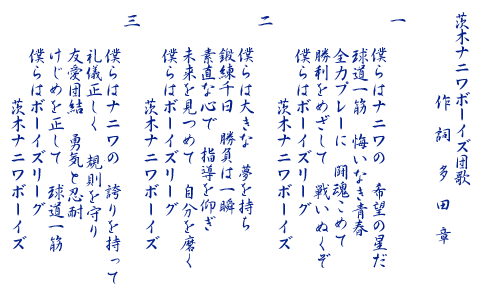 茨木ナニワボーイズ団歌
作詞 多田章
一
僕らはナニワの 希望の星だ
球道一筋 悔いなき青春
全力プレーに 闘魂こめて
勝利をめざして 戦いぬくぞ
僕らはボーイズリーグ
茨木ナニワボーイズ
二
僕らは大きな 夢を持ち
鍛練千日 勝負は一瞬
素直な心で 指導を仰ぎ
未来を見つめて 自分を磨く
僕らはボーイズリーグ
茨木ナニワボーイズ
三
僕らはナニワの 誇りを持って
礼儀正しく 規則を守り
友愛団結 勇気と忍耐
けじめを正して 球道一筋
僕らはボーイズリーグ
茨木ナニワボーイズ